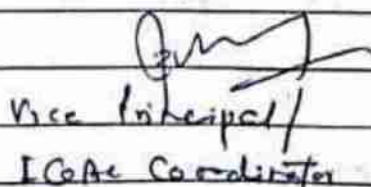 Vice Principal/
IQAC Coordinator